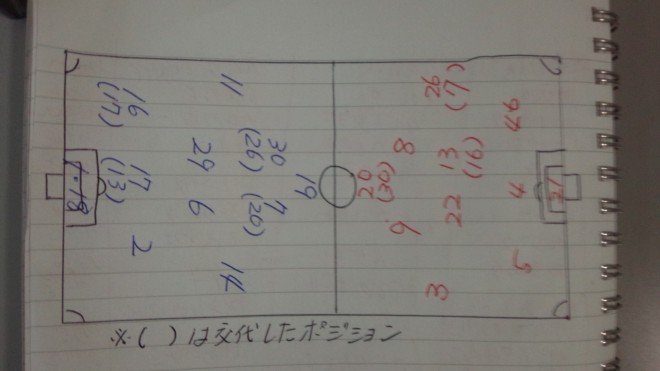 11
16
(17)
30
(26)
29
19
17
(13)
7
(20)
6
1.18
2
14
26
(7)
46
8
13
(16)
20
(30)
4
22
9
5
3
※( )は交代したポジション